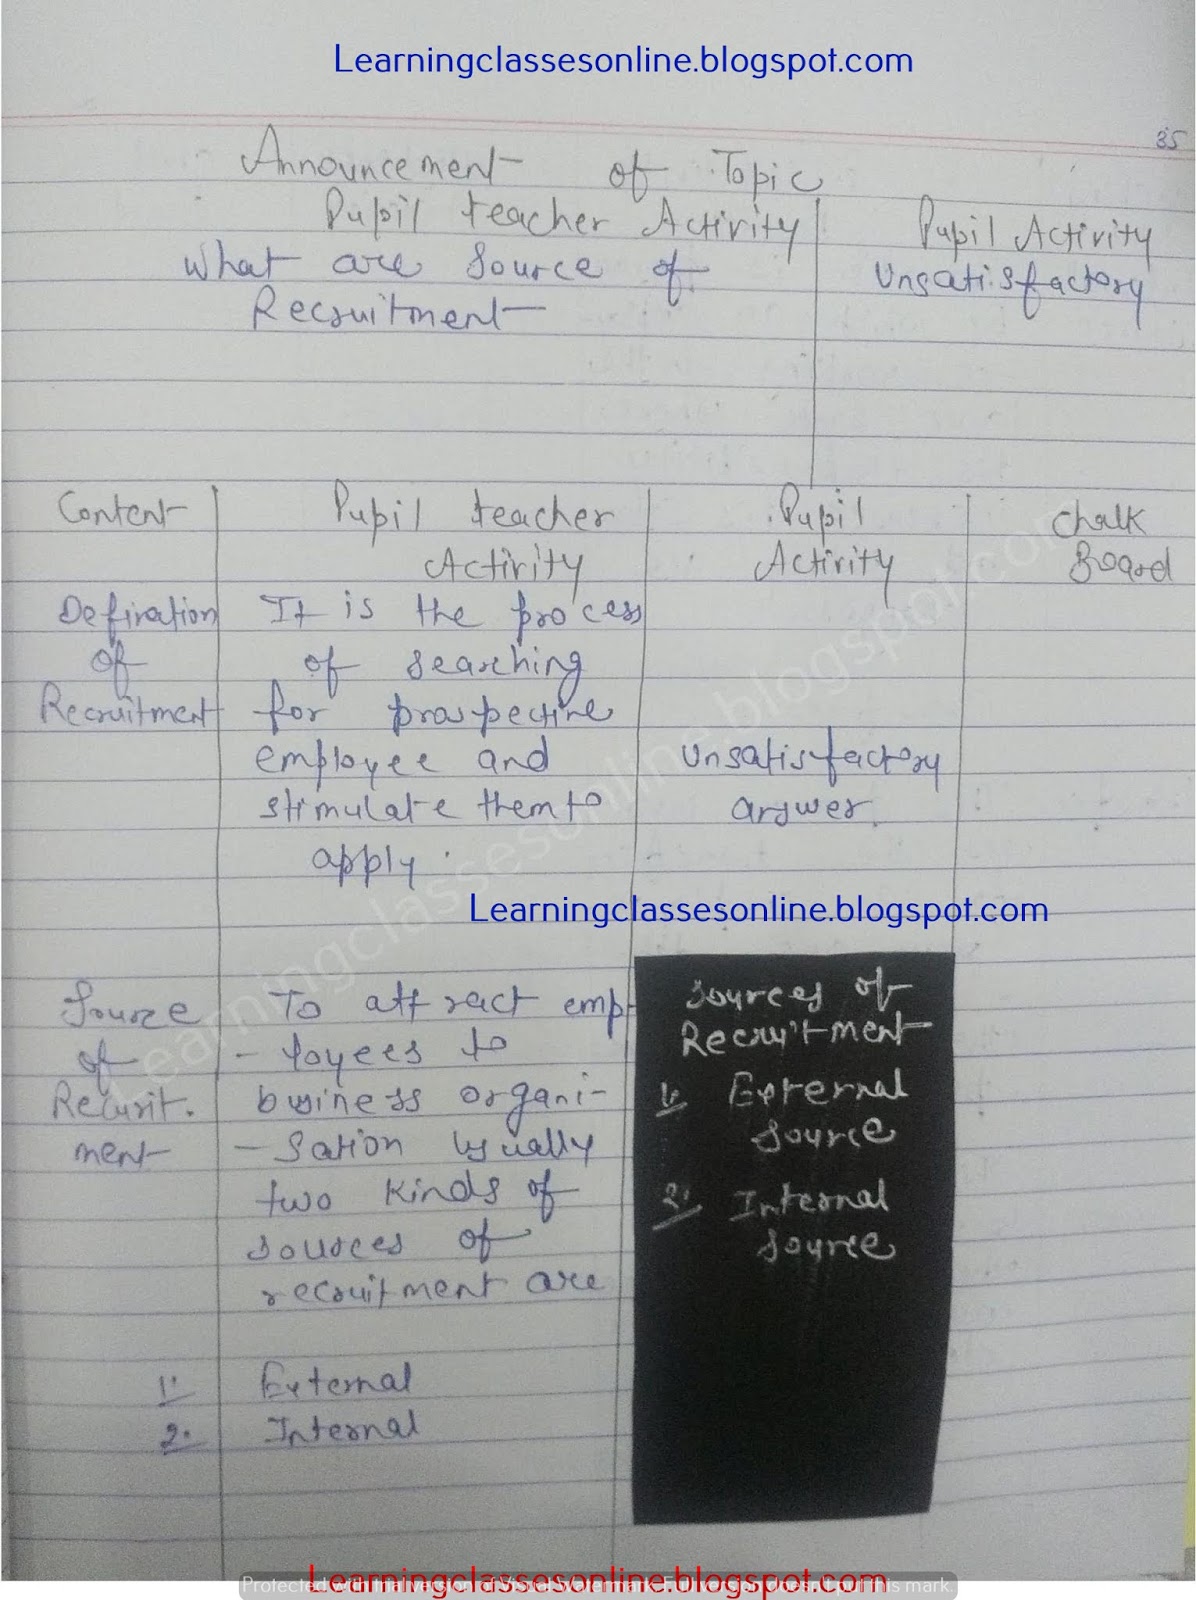 Learningclassesonline.blogspot.com
35
Announcement of Topic
Pupil teacher Activity
Pupil Activity
What are source of
Unsatisfactory
Recruitment
Content
Pupil teacher
Activity
Pupil
Activity
Chalk
Board
Defination
of
Recruitment
It is the process
of searching
for prospective
employee and
stimulate them to
apply.
Unsatisfactory
answer.
Learningclassesonline.blogspot.com
Learningclassesonline.blogspot.com
Source
of
Recurit.
ment
To attract emp-
- loyees to
business organi-
- sation usually
two kinds of
sources of
recruitment are
1. External
2. Internal
Sources of
Recruitment
1. External
source
2. Internal
source
Learningclassesonline.blogspot.com
Protected with trial version of Visual Watermark. Full version doesn't put this mark.